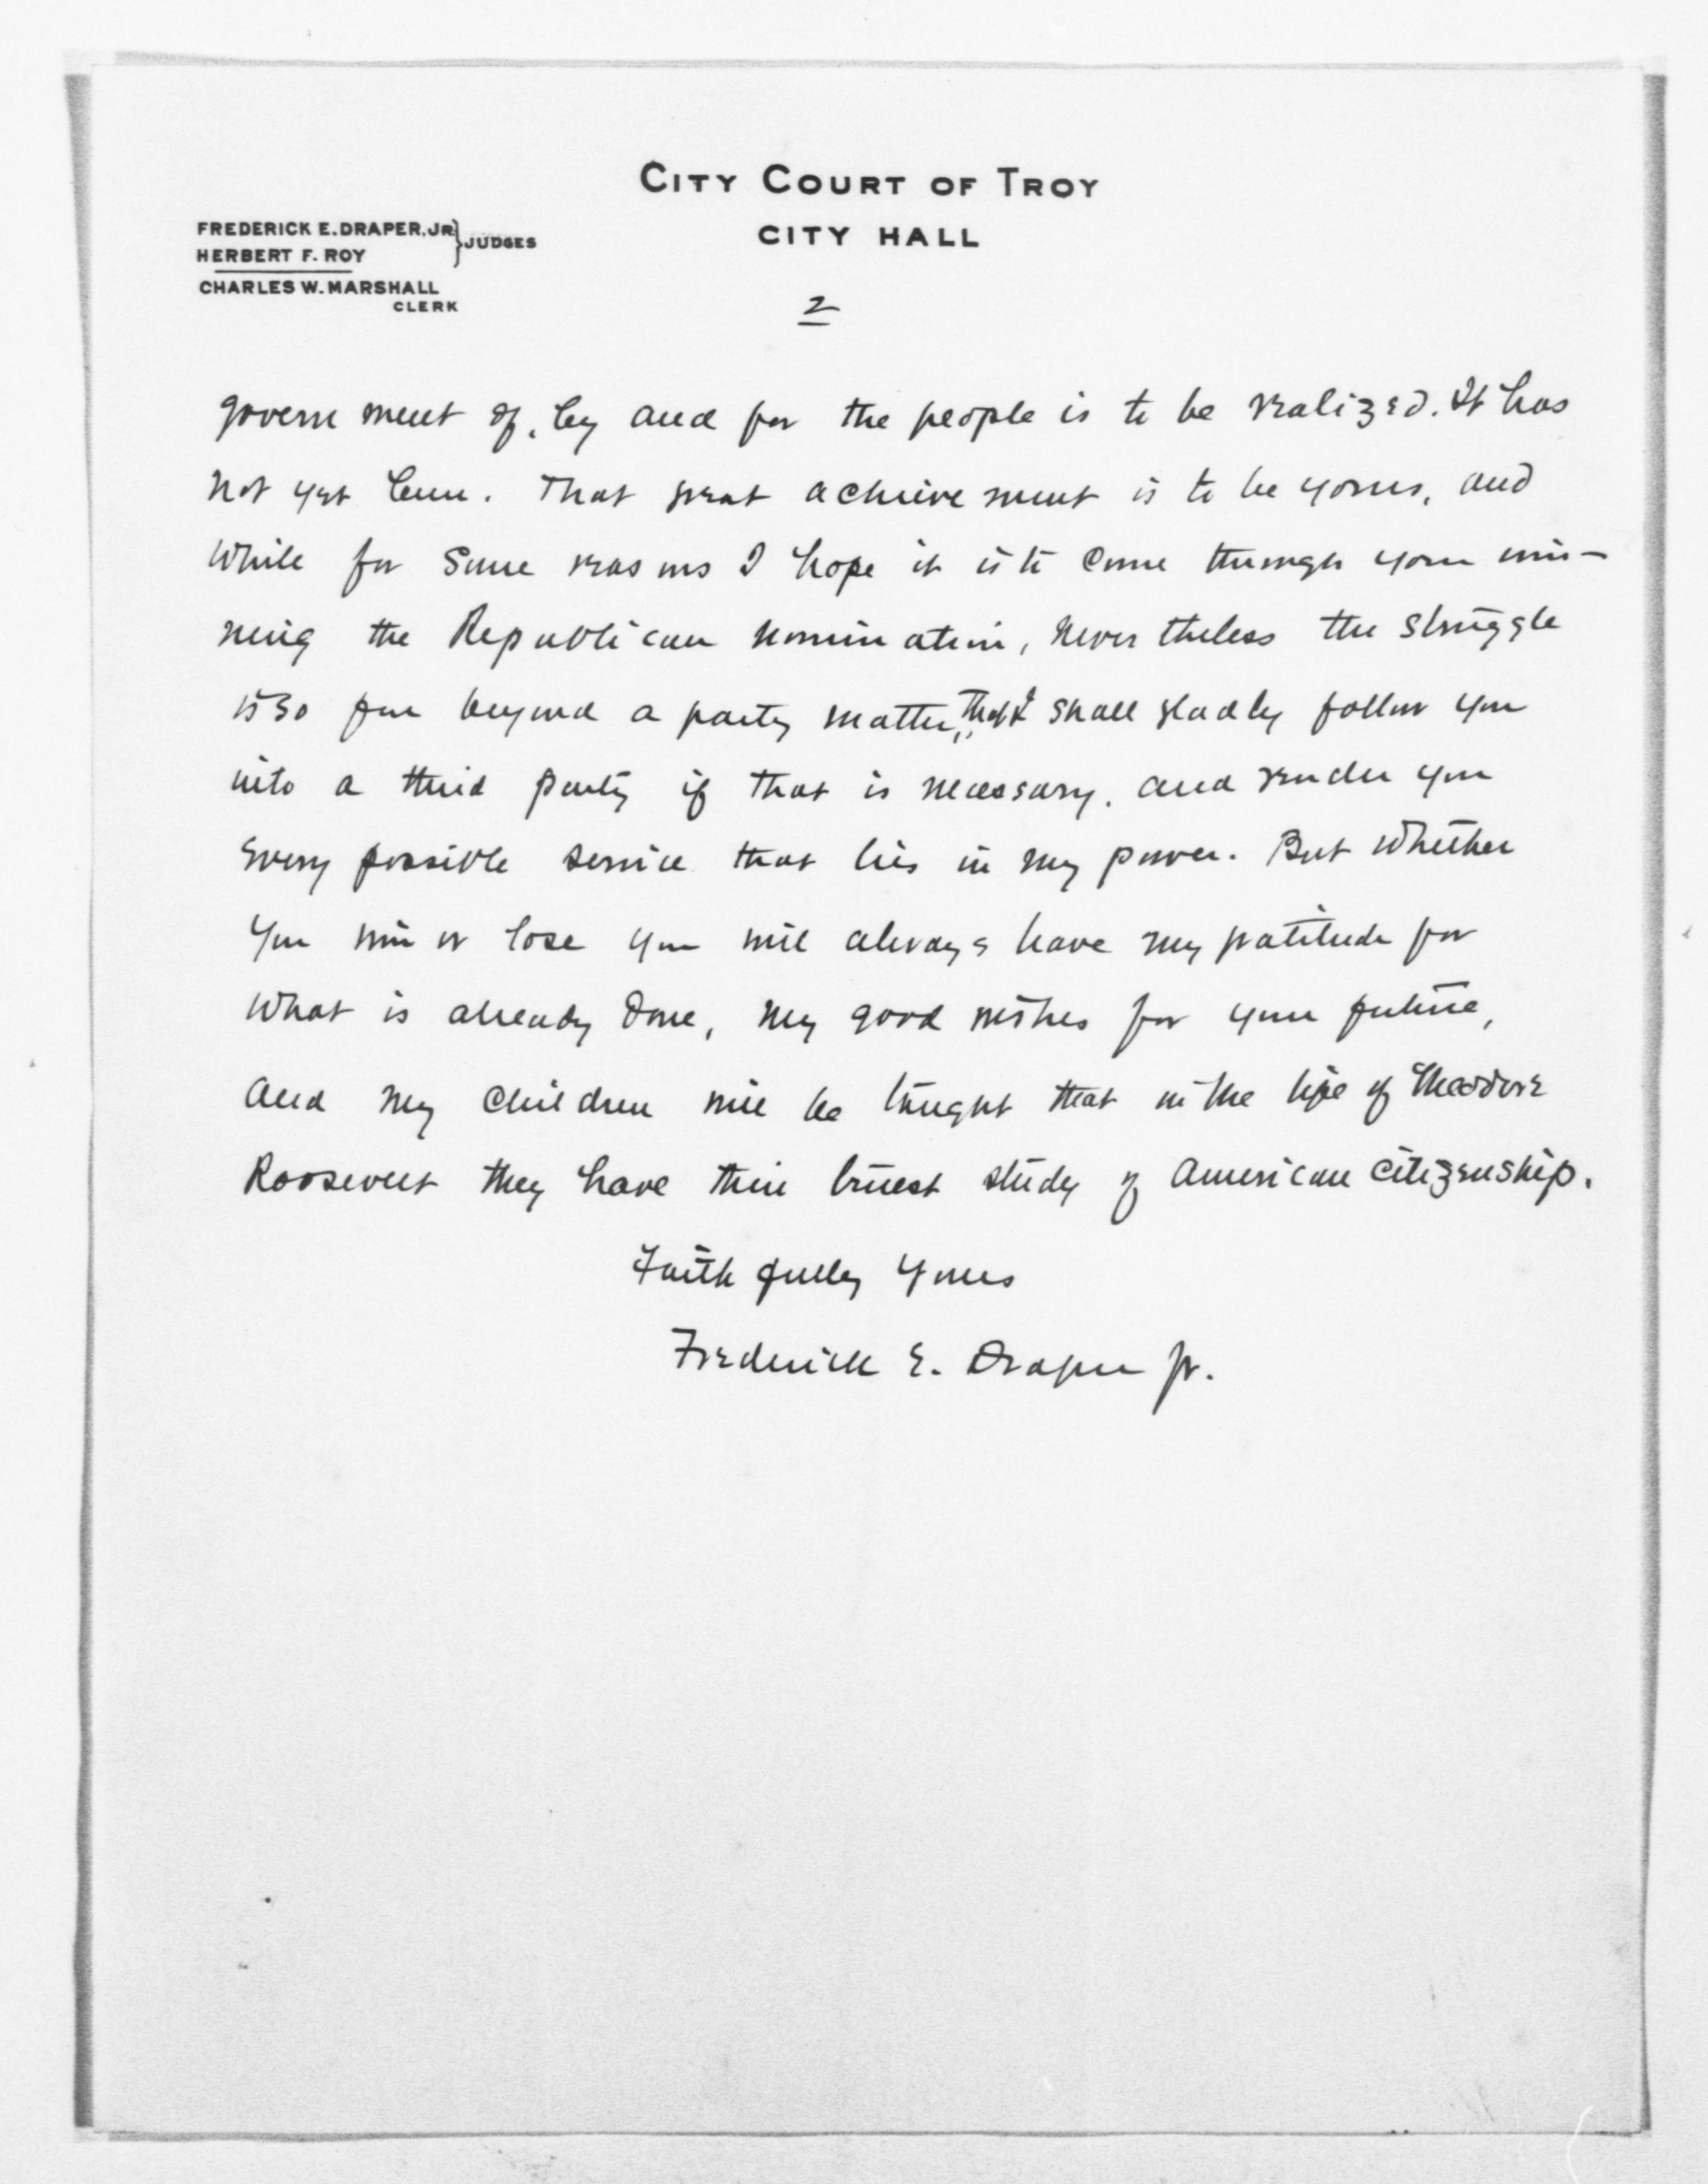 CITY COURT OF TROY
CITY HALL
FREDERICK E. DRAPER, JR. } JUDGES
HERBERT F. ROY
CHARLES W. MARSHALL
CLERK
2
government of, by and for the people is to be realized. It has
not yet been. That great achievement is to be yours, and
while for some reasons I hope it is to come through your win-
ning the Republican nomination, nevertheless the struggle
is so far beyond a party matter, that I shall gladly follow you
into a third party if that is necessary, and render you
every possible service that lies in my power. But whether
you win or lose you will always have my gratitude for
what is already done, my good wishes for your future,
and my children will be taught that in the life of Theodore
Roosevelt they have their truest study of American citizenship.
Faithfully yours
Frederick E. Draper Jr.